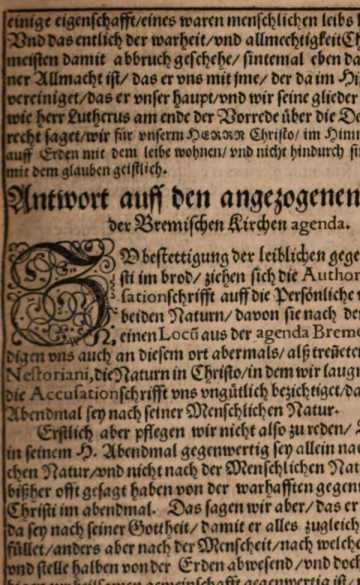 einige eigenschafft/eines waren menschlichen leibs
Vnd das entlich der warheit/vnd allmechtigkeit
meisten damit abbruch geschehe/ sintemal eben da
ner Allmacht ist/ das er vns mit jme/ der da im
vereiniget/das er vnser haupt/vnd wir seine glieder
wie herr Lutherus am ende der Vorrede über die
recht saget/wir für vnserm HERRN Christo/ im
auff Erden mit dem leibe wohnen/ vnd nicht hindurch
mit dem glauben geistlich.
Antwort auff den angezogenen
der Bremischen Kirchen agenda.
ZV bestettigung der leiblichen gege
sti im brod/ ziehen sich die Author
sationschrifft auff die Persönliche
beiden Naturn/ davon sie nach der
einen Locū aus der agenda Breme
digen vns auch an diesem ort abermals/ alß
Nestoriani,die Naturn in Christo/in dem wir
die Accusationschrifft vns vngütlich bezichtiget/da
Abendmal sey nach seiner Menschlichen Natur.
Erstlich aber pflegen wir nicht also zu reden/
in seinem H. Abendmal gegenwertig sey allein na
chen Natur/vnd nicht nach der Menschlichen Nat
bißher offt gesagt haben von der warhafften gegen
Christi im abendmal. Das sagen wir aber/ das er
da sey nach seiner Gottheit/ damit er alles zugleich
füllet/anders aber nach der Menscheit/nach welche
vnd stelle halben von der Erden abwesend/ vnd
gemeinschafft gegenwertig